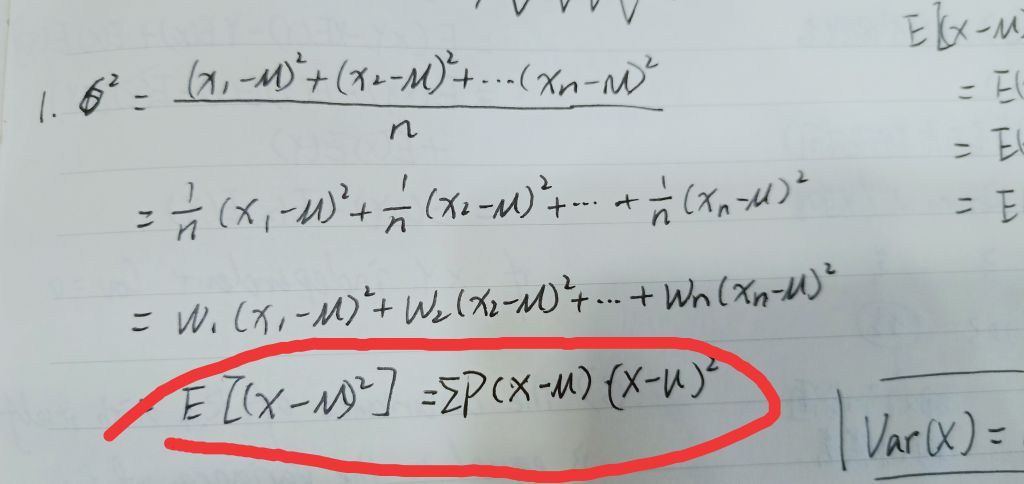 E[(x-μ)
1. σ² = (x₁-μ)²+(x₂-μ)²+...(xn-μ)² / n
= E(
= E(
= 1/n (x₁-μ)²+ 1/n (x₂-μ)²+...+ 1/n (xn-μ)²
= E
= W₁(x₁-μ)²+W₂(x₂-μ)²+...+Wn(xn-μ)²
= E[(x-μ)²] =ΣP(x-μ)(x-μ)²
Var(x) =